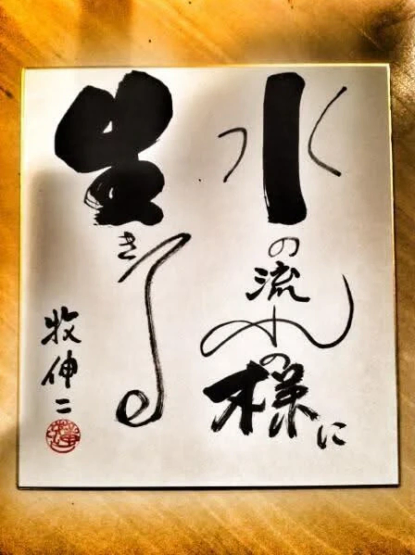 水の流れの様に
生きる
牧伸二